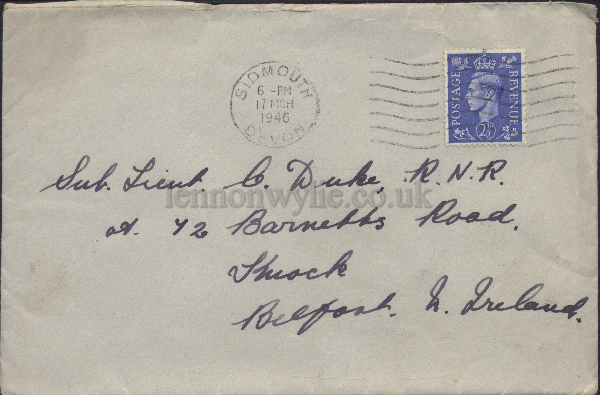 SIDMOUTH
6 - PM
17 MCH
1946
DEVON
POSTAGE
REVENUE
2½D
Sub. Lieut. C. Duke, R.N.R.
lennonwylie.co.uk
at. 72 Barnetts Road.
Knock
Belfast. N. Ireland.